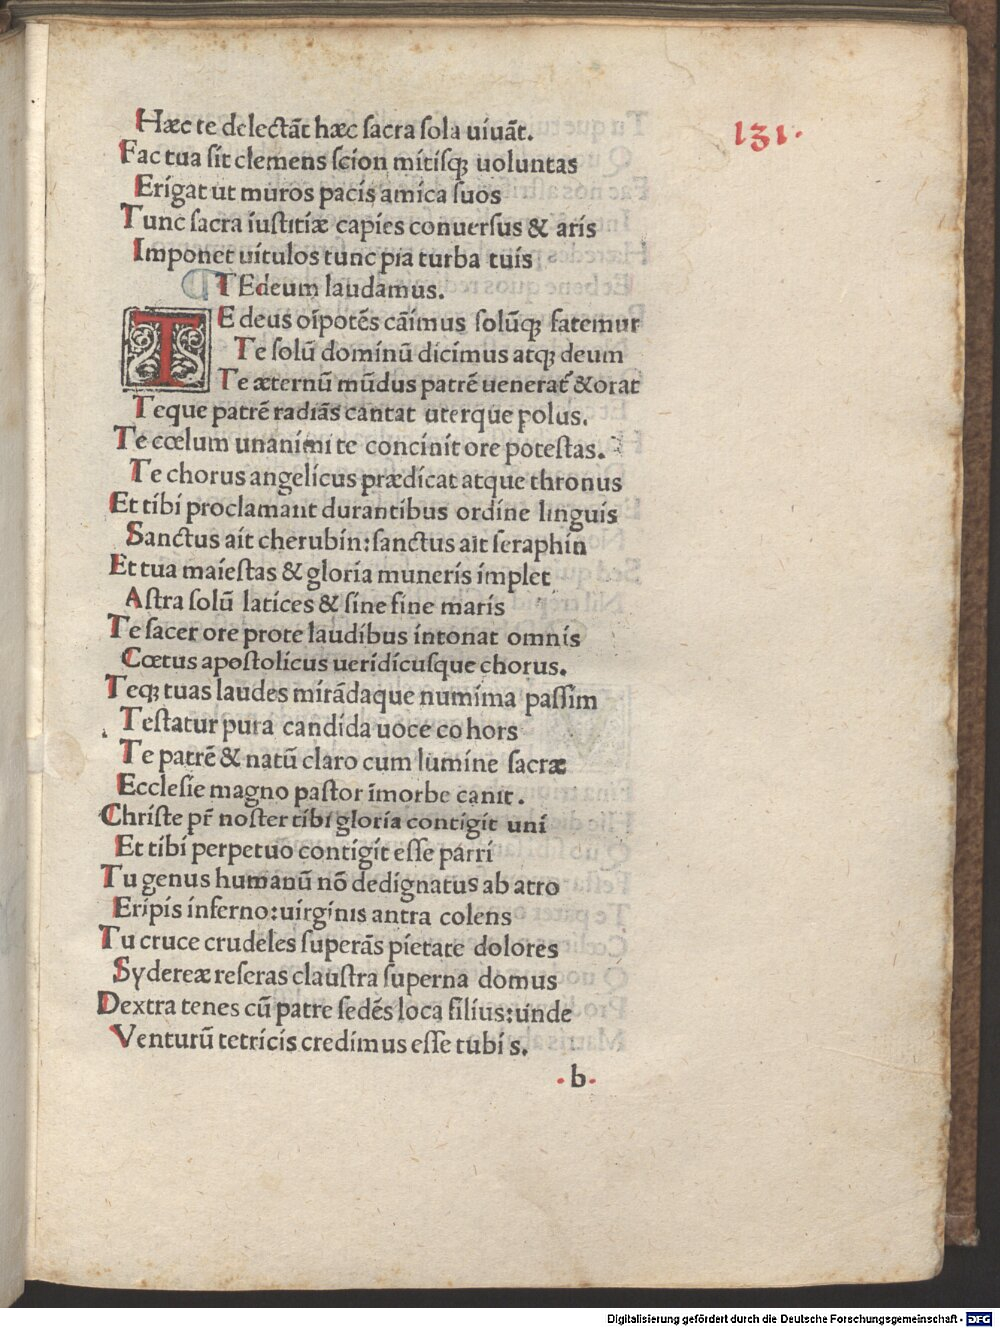 131.
Hæc te delectāt hæc sacra sola uiuāt.
Fac tua sit clemens scion mitisqꝫ uoluntas
Erigat ut muros pacis amica suos
Tunc sacra iustitiæ capies conuersus & aris
Imponet uitulos tunc pia turba tuis
TEdeum laudamus.
TE deus oīpotēs cāimus solūqꝫ fatemur
Te solū dominū dicimus atqꝫ deum
Te æternū mūdus patrē uenerat᷑ & orat
Teque patrē radiās cantat uterque polus.
Te cœlum unanimi te concinit ore potestas.
Te chorus angelicus prædicat atque thronus
Et tibi proclamant durantibus ordine linguis
Sanctus ait cherubin: sanctus ait seraphin
Et tua maiestas & gloria muneris implet
Astra solū latices & sine fine maris
Te sacer ore prote laudibus intonat omnis
Cœtus apostolicus ueridicusque chorus.
Teqꝫ tuas laudes mirādaque numima passim
Testatur pura candida uoce cohors
Te patrē & natū claro cum lumine sacræ
Ecclesie magno pastor īmorbe canit.
Christe pr̄ noster tibi gloria contigit uni
Et tibi perpetuo contigit esse patri
Tu genus humanū nō dedignatus ab atro
Eripis inferno: uirginis antra colens
Tu cruce crudeles superās pietate dolores
Sydereæ reseras claustra superna domus
Dextra tenes cū patre sedēs loca filius: unde
Venturū tetricis credimus esse tubis.
.b.
Digitalisierung gefördert durch die Deutsche Forschungsgemeinschaft - DFG